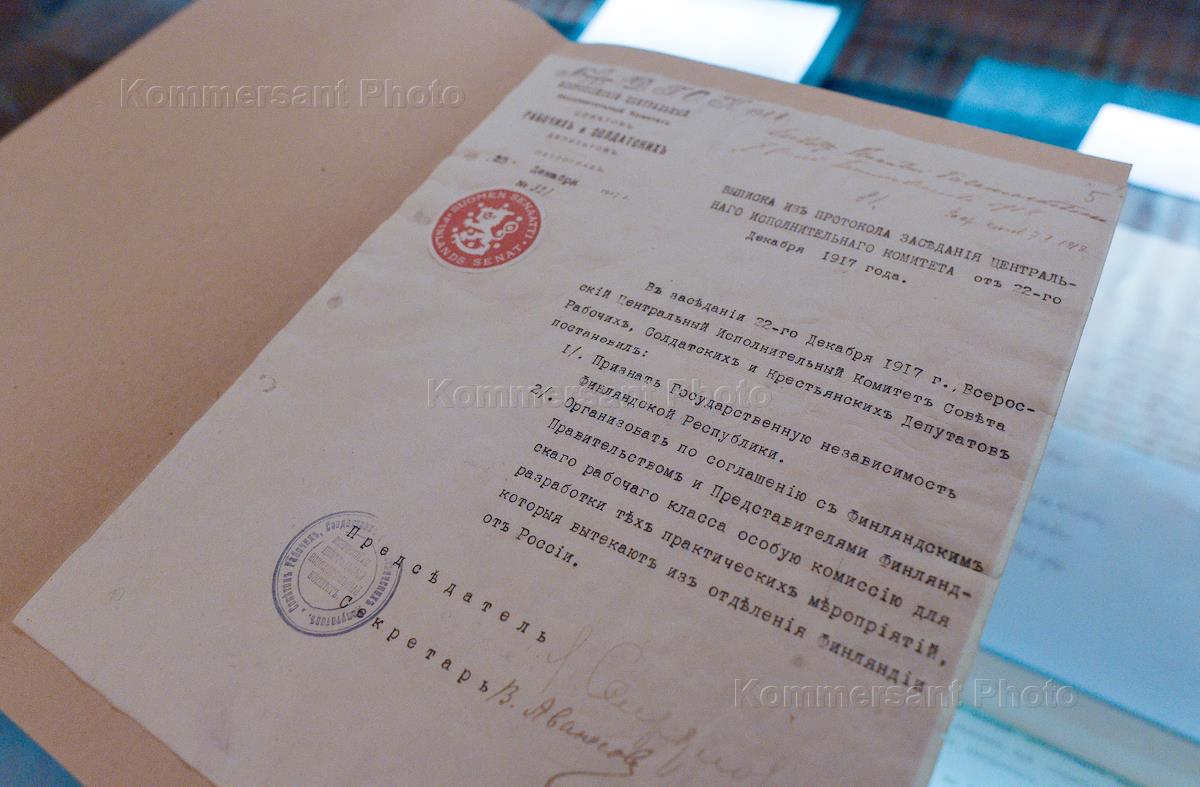 Kommersant Photo
ВСЕРОССІЙСКІЙ ЦЕНТРАЛЬНЫЙ
Исполнительный Комитетъ
СОВѢТОВЪ
РАБОЧИХЪ и СОЛДАТСКИХЪ
ДЕПУТАТОВЪ
ПЕТРОГРАДЪ.
Декабря 1917 г.
№
5
SUOMEN SENAATTI
FINLANDS SENAT
ВЫПИСКА ИЗЪ ПРОТОКОЛА ЗАСѢДАНІЯ ЦЕНТРАЛЬ-
НАГО ИСПОЛНИТЕЛЬНАГО КОМИТЕТА отъ 22-го
Декабря 1917 года.
Въ засѣданіи 22-го Декабря 1917 г., Всерос-
скій Центральный Исполнительный Комитетъ Совѣта
Рабочихъ, Солдатскихъ и Крестьянскихъ Депутатовъ
постановилъ:
1/. Признать Государственную независимость
Финляндской Республики.
2/. Организовать по соглашенію съ Финляндскимъ
Правительствомъ и Представителями Финлянд-
скаго рабочаго класса особую комиссію для
разработки тѣхъ практическихъ мѣропріятій,
которыя вытекаютъ изъ отдѣленія Финляндіи
отъ Россіи.
Kommersant Photo
Предсѣдатель
Секретарь В. Аванесов
Kommersant Photo